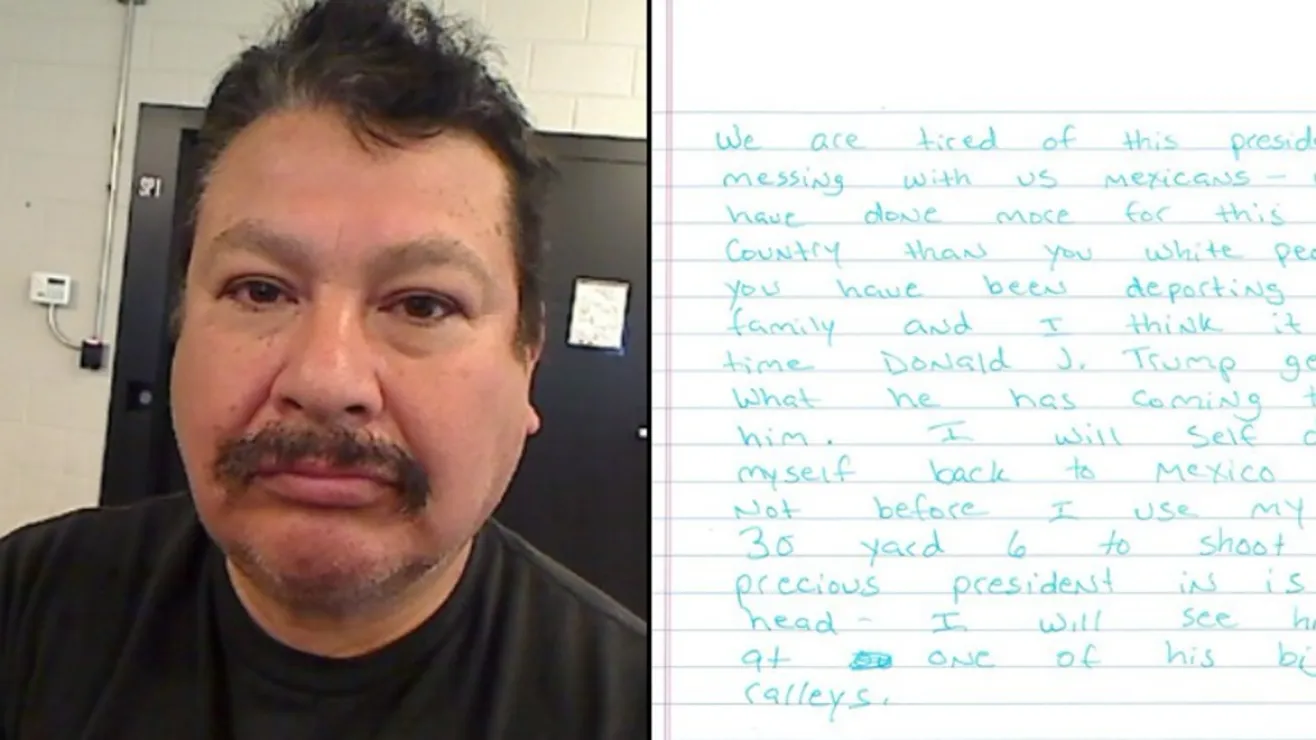 SP1
We are tired of this preside
messing with us mexicans -
have done more for this
Country than you white peo
you have been deporting
family and I think it
time Donald J. Trump ge
What he has coming t
him. I will self d
myself back to Mexico
Not before I use my
30 yard 6 to shoot
precious president in is
head - I will see h
at one of his bi
ralleys.